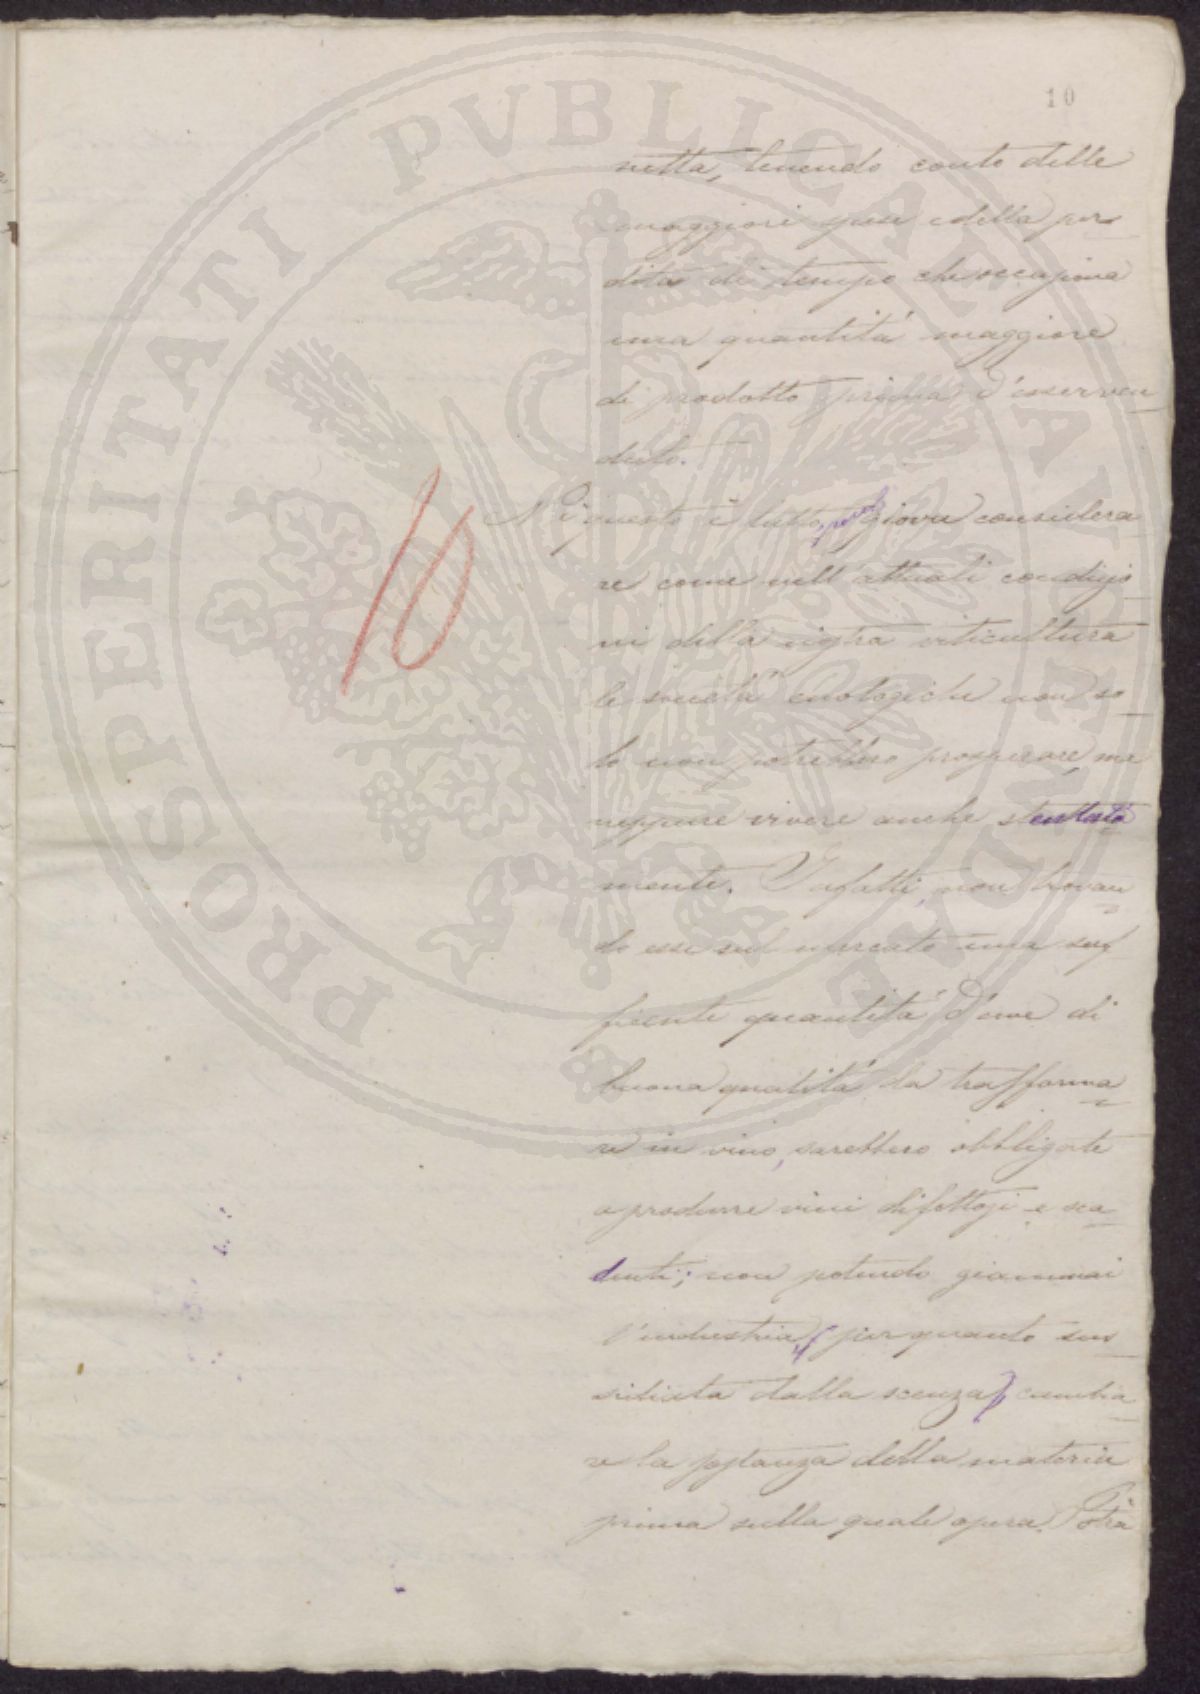 10
netta, tenendo conto delle
maggiori spese e della per
dita di tempo che occasiona
una quantità maggiore
di prodotto prima d'esser ven
duto.
10
Nè questo è tutto, però giova considera
re come nell'attuali condizio
ni della nostra viticultura
le società enologiche non so
lo non potrebbero prosperare, ma
neppure vivere anche stentata
mente. Infatti, non trovan
do esse sul mercato una suf
ficiente quantità d'uve di
buona qualità da trasforma
re in vino, sarebbero obbligate
a produrre vini difettosi e sca
denti; non potendo giammai
l'industria, per quanto sus
sidiata dalla scenza, cambia
re la sostanza della materia
prima sulla quale opera. Potrà
PROSPERITATI PVBLICAE AVGENDAE